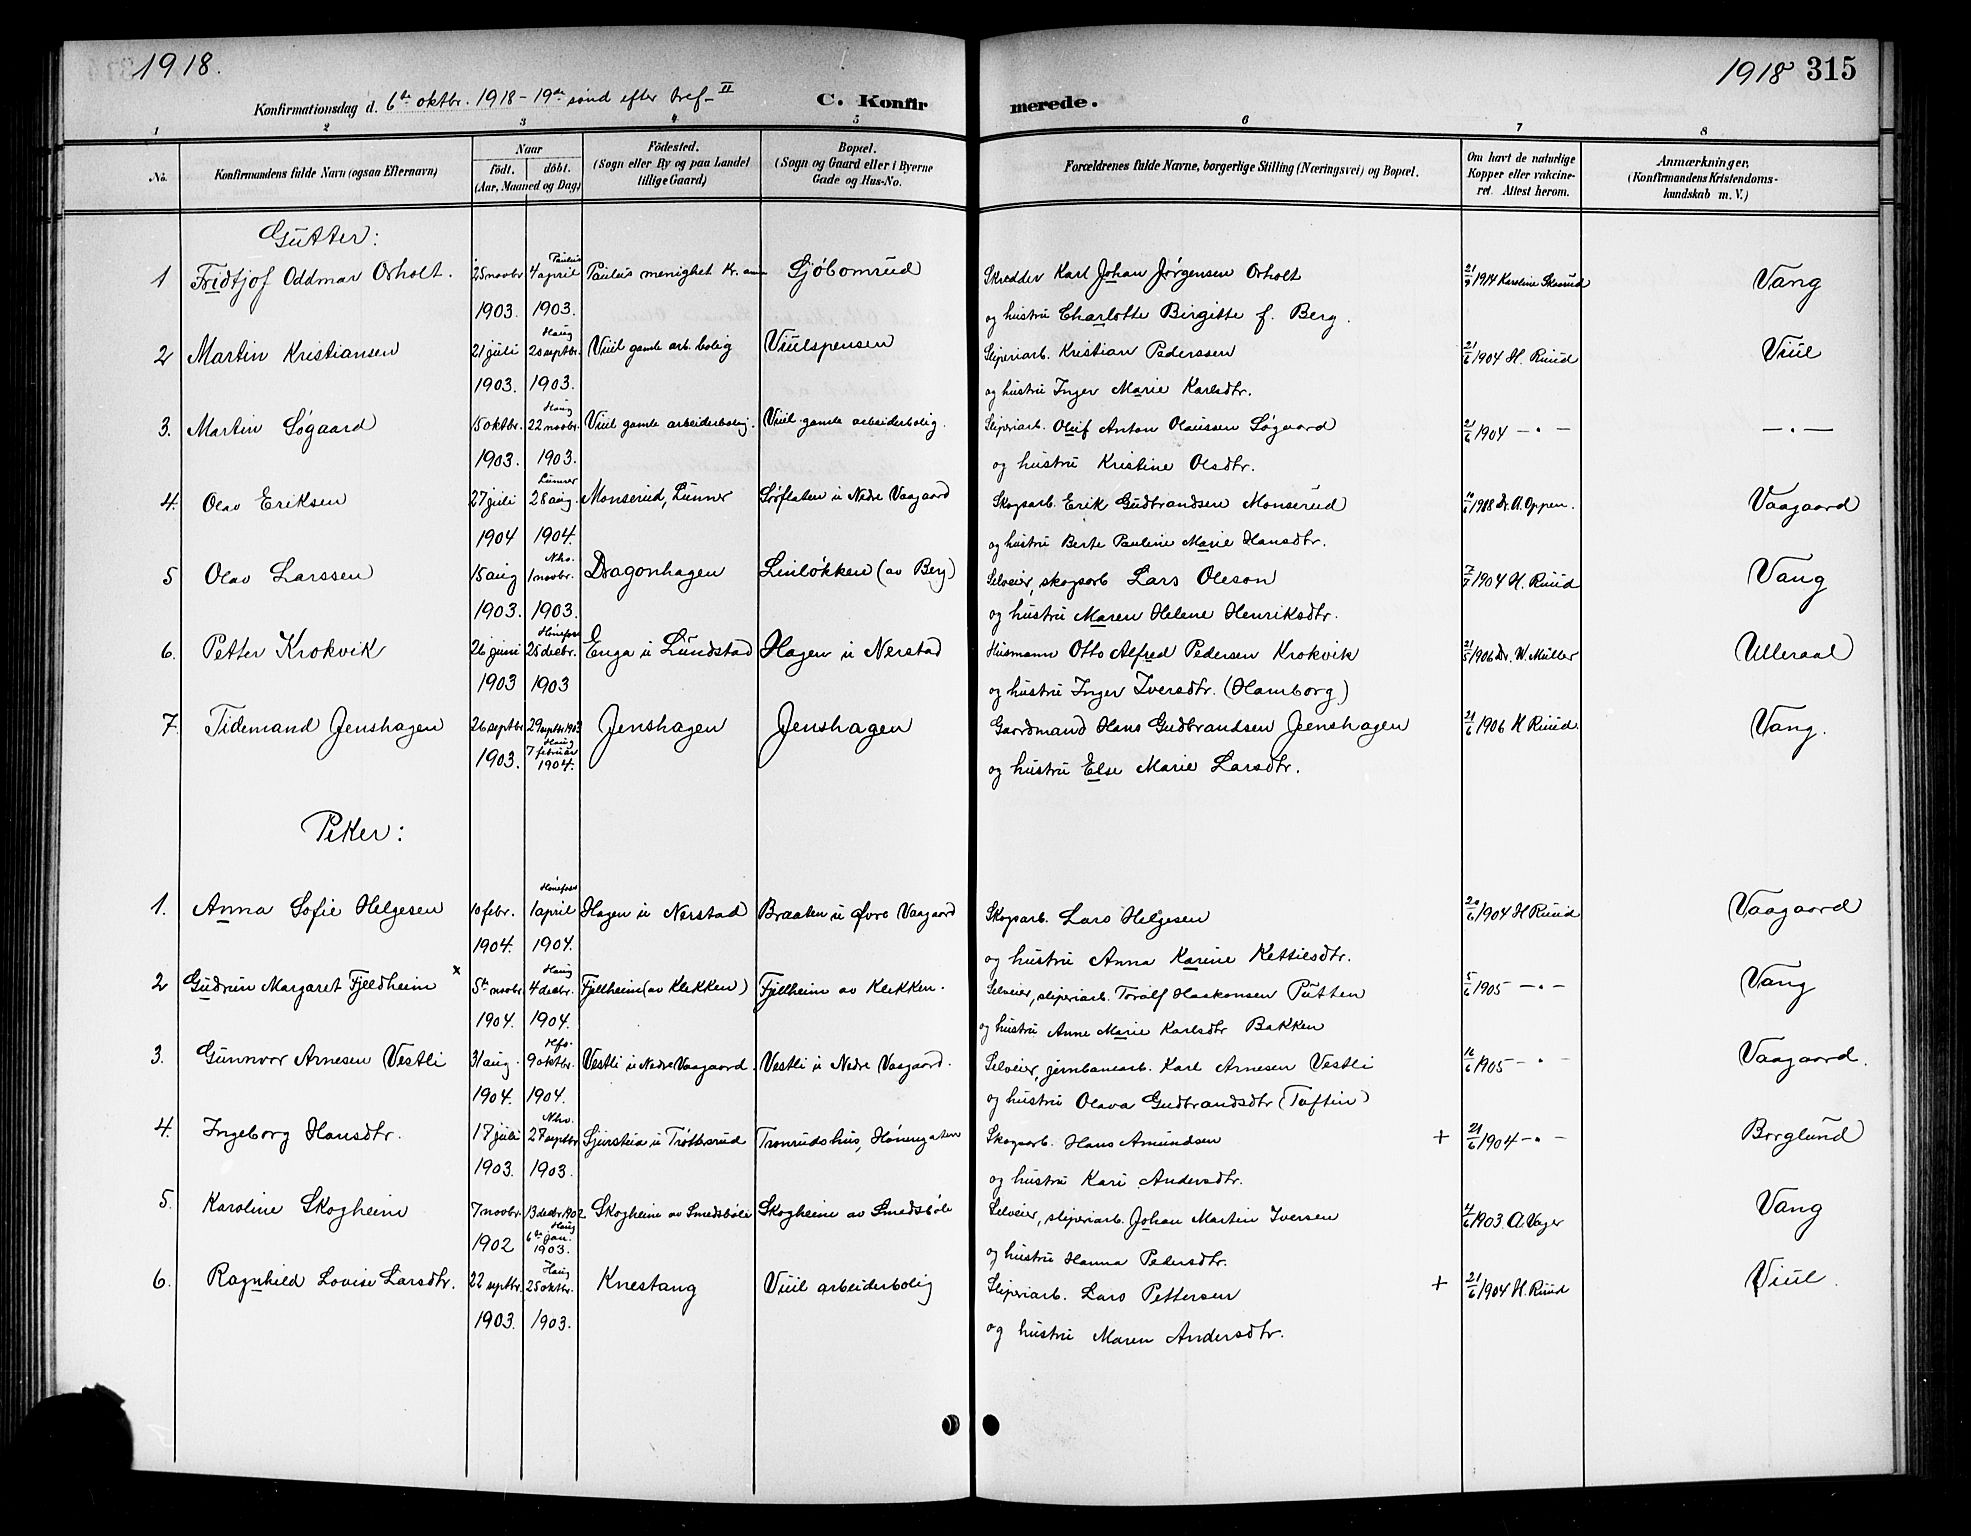 1918.
1918 315
Konfirmationsdag d. 6te oktbr. 1918 - 19de sønd efter Tref - II
C. Konfirmerede.
1 2 3 4 5 6 7 8
No.
Konfirmandens fulde Navn (ogsaa Efternavn)
Naar
födt. döbt.
(Aar, Maaned og Dag)
Födested.
(Sogn eller By og paa Landet
tillige Gaard)
Bopæl.
(Sogn og Gaard eller i Byerne
Gade og Hus-No.
Forældrenes fulde Navne, borgerlige Stilling (Næringsvei) og Bopæl.
Om havt de naturlige
Kopper eller vakcine-
ret. Attest herom.
Anmærkninger,
(Konfirmandens Kristendoms-
kundskab m. V.)
Gutter:
1 Fridtjof Oddmar Orholt. 25 novbr 1903. Paulus 4 april 1903. Paulus menighet Kr.ania Sjöbomrud Skredder Karl Johan Jørgensen Orholt 21/9 1914 Karoline Skarud Vang
og hustru Charlotte Birgitte f. Berg.
2 Martin Kristiansen 21 juli 1903. Haug 20 septbr. 1903. Viul gamle arb.bolig Viulspensen Sliperiarb. Kristian Pederssen 21/6 1904 H. Ruud Viul
og hustru Inger Marie Karlsdtr.
3. Martin Søgaard 15 oktbr. 1903. Haug 22 novbr. 1903. Viul gamle arbeiderbolig. Viul gamle arbeiderbolig. Sliperiarb. Oluf Anton Olaussen Søgaard 21/6 1904 - " - - " -
og hustru Kristine Olsdtr.
4. Olav Eriksen 27 juli 1904 Lunner 28 aug. 1904. Monserud, Lunner Sørflaten u Nedre Vaagaard Skogsarb. Erik Gudbrandsen Monserud 10/6 1918 Dr. A. Oppen. Vaagaard
og hustru Berte Pauline Marie Hansdtr.
5 Olav Larssen 15 aug 1903. Nho. 1 novbr. 1903. Dragonhagen Linløkken (av Berg) Selveier, skogsarb Lars Oleson 7/7 1904 H. Ruud Vang
og hustru Maren Helene Henriksdtr.
6. Petter Krokvik 26 juni 1903 Hønefoss 25 decbr. 1903 Enga u Lundstad Hagen u Nerstad Husmann Otto Alfred Pedersen Krokvik 21/5 1906 Dr. W. Müller Ulleraal
og hustru Inger Iversdtr. (Hamborg)
7. Tidemand Jenshagen 26 septbr 1903. 29 septbr 1903 Haug 7 februar 1904. Jenshagen Jenshagen Gaardmand Hans Gudbrandsen Jenshagen 21/6 1906 H Ruud. Vang.
og hustru Else Marie Larsdtr.
Piker:
1. Anna Sofie Helgesen 10 febr. 1904. Hønefoss 1 april 1904. Hagen u Nerstad Braaten u Øvre Vaagaard Skogsarb. Lars Helgesen 20/6 1904 H Ruud Vaagaard
og hustru Anna Karine Kettilsdtr.
2 Gudrun Margaret Fjeldheim x 5te novbr 1904. Haug 4 decbr. 1904. Fjellheim (av Klekken) Fjellheim av Klekken. Selveier, sliperiarb. Toralf Haakonsen Putten 5/6 1905 - " - Vang
og hustru Anne Marie Karlsdtr Bakken
3. Gunnvor Arnesen Vestli 31 aug. 1904. Hfs. 9 oktbr. 1904. Vestli u Nedre Vaagaard. Vestli u Nedre Vaagaard. Selveier, jernbanearb. Karl Arnesen Vestli 16/6 1905 - " - Vaagaard.
og hustru Olava Gudbrandsdtr (Toftin)
4. Ingeborg Hansdtr. 17 juli 1903. Nho. 27 septbr 1903. Sjurstua u Trøttsrud Tronrudshus, Hønengaten Skogsarb. Hans Amundsen + 21/6 1904 - " - Borglund
og hustru Kari Andersdtr.
5. Karoline Skogheim 7 novbr. 1902 13 decbr 1902 Haug 6te jan. 1903. Skogheim av Smedsbøle Skogheim av Smedsbøle Selveier, sliperiarb. Johan Martin Iversen 4/6 1903. A Vager Vang
og hustru Hanna Pedersdtr.
6. Ragnhild Lovise Larsdtr. 22 septbr. 1903. Haug 25 oktbr. 1903. Knestang Viul arbeiderbolig Sliperiarb. Lars Pettersen + 21/6 1904 H. Ruud Viul.
og hustru Maren Andersdtr.